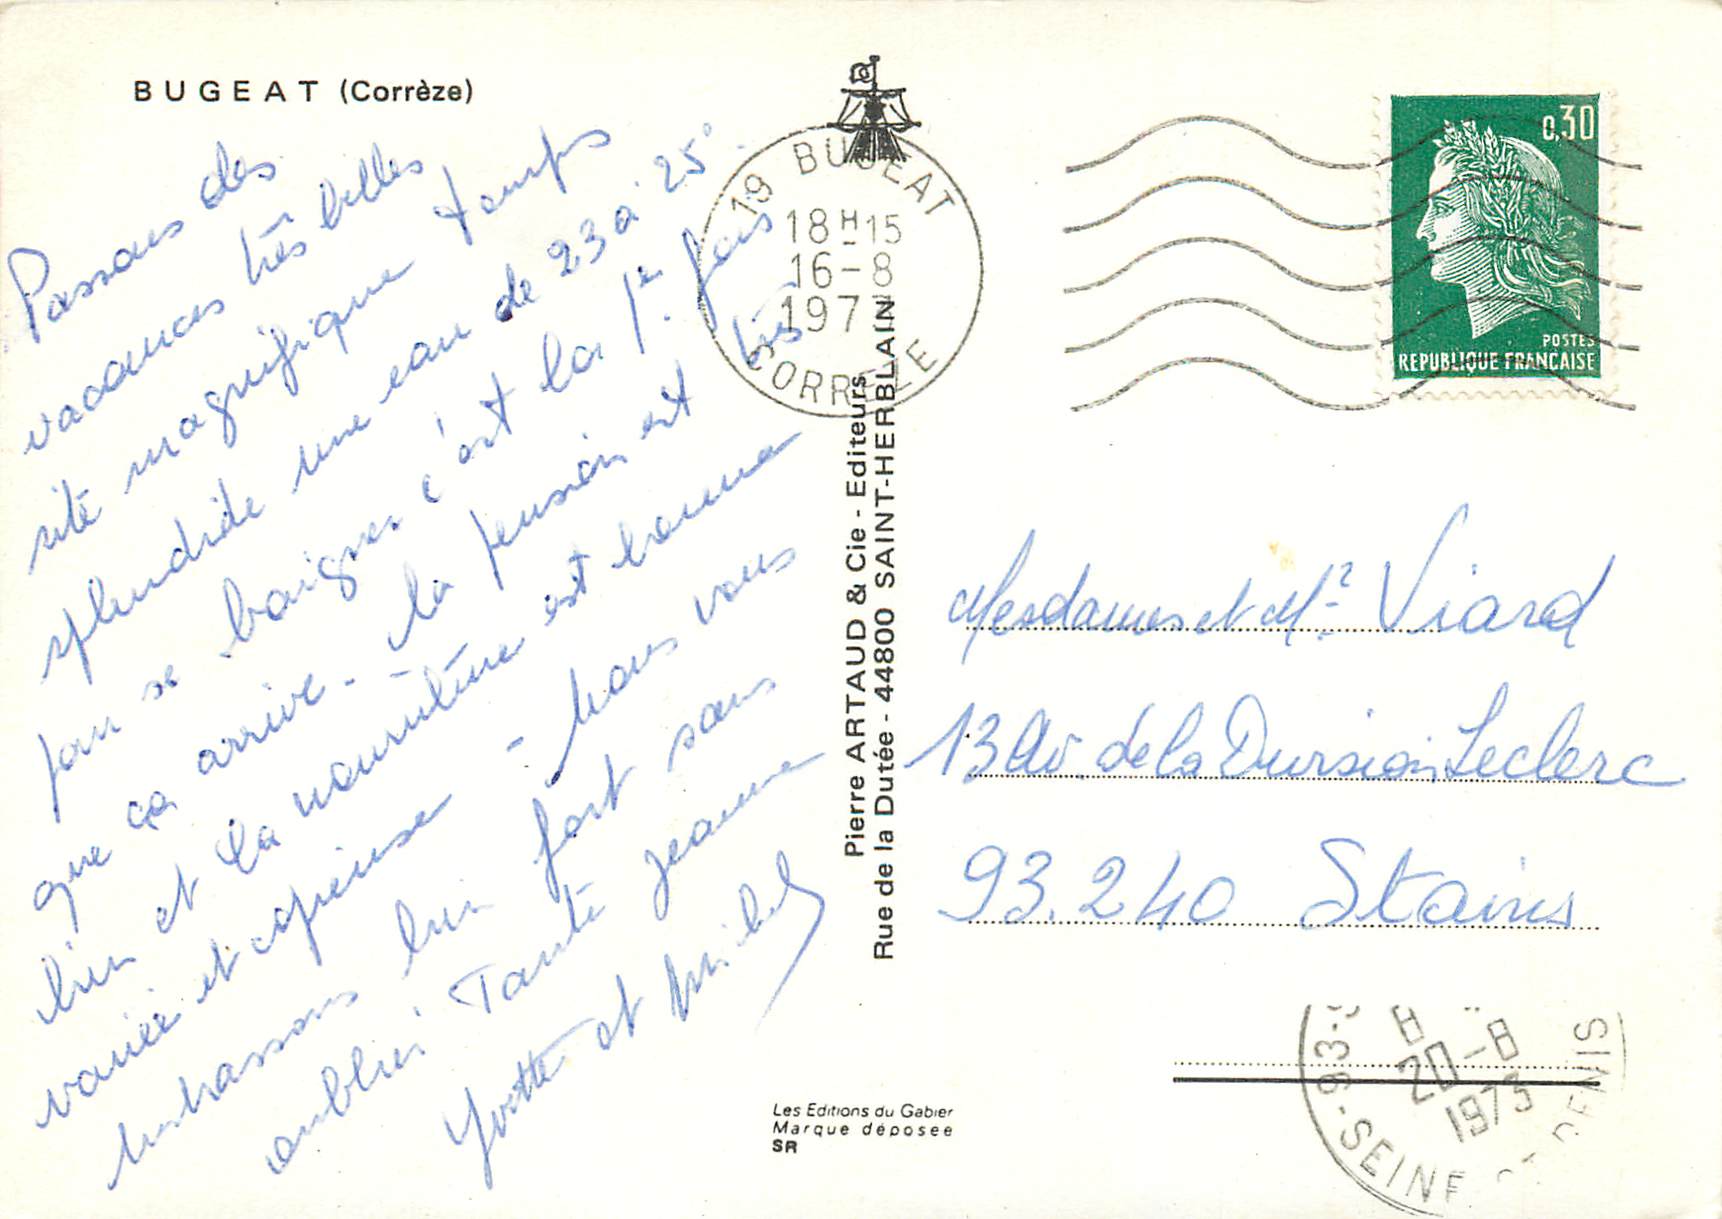 BUGEAT (Corrèze)
Passons des
vacances très belles
site magnifique temps
splendide une eau de 23 à 25°
pour se baigner c'est la 1re fois
que ça arrive - la pension est très
bien et la nourriture est bonne
variée et copieuse - nous vous
embrassons bien fort sans
oublier Tante Jeanne
Yvette et Michel
19 BUGEAT
18H-15
16-8
197
CORREZE
0,30
POSTES
REPUBLIQUE FRANÇAISE
Pierre ARTAUD & Cie - Editeurs
Rue de la Dutée - 44800 SAINT-HERBLAIN
Mesdames et Mr Viard
13 Av. de la Division Leclerc
93.240 Stains
Les Editions du Gabier
Marque déposée
SR
93-
20-8
1973
SEINE ST DENIS